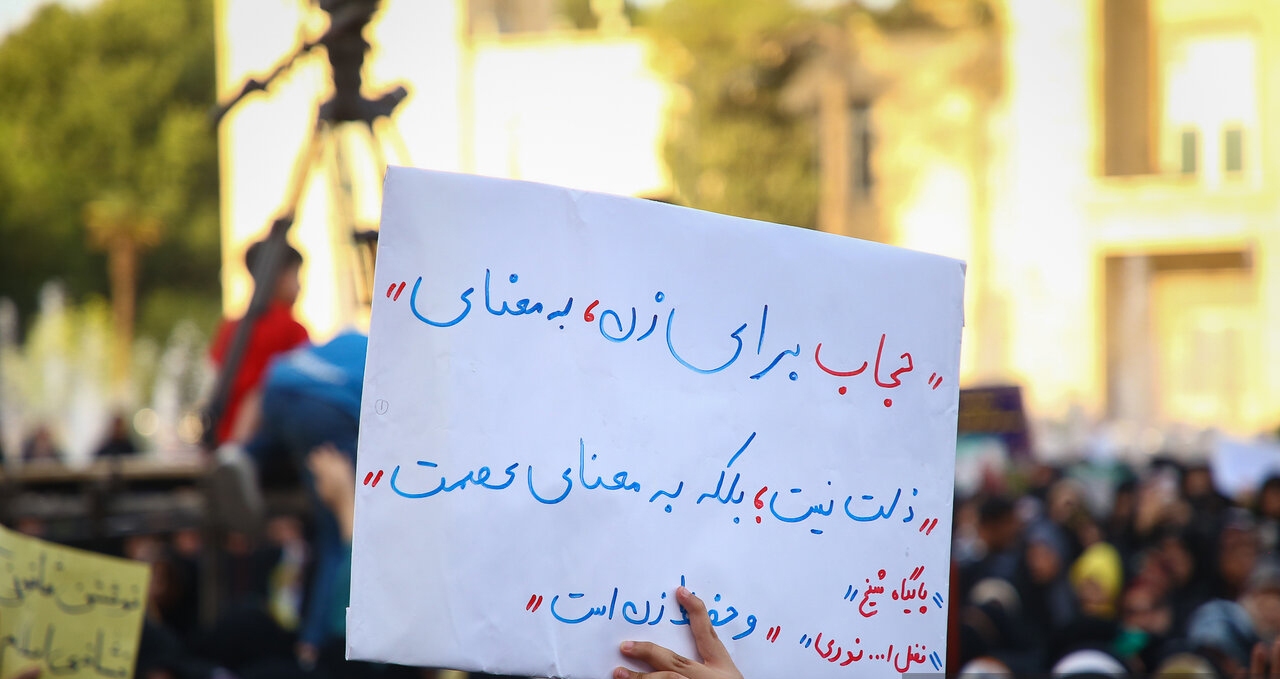 "حجاب برای زن، به معنای"
"ذلت نیست، بلکه به معنای عصمت"
"و حفظ زن است"
"پایگاه شیخ"
"فضل ا... نوری"